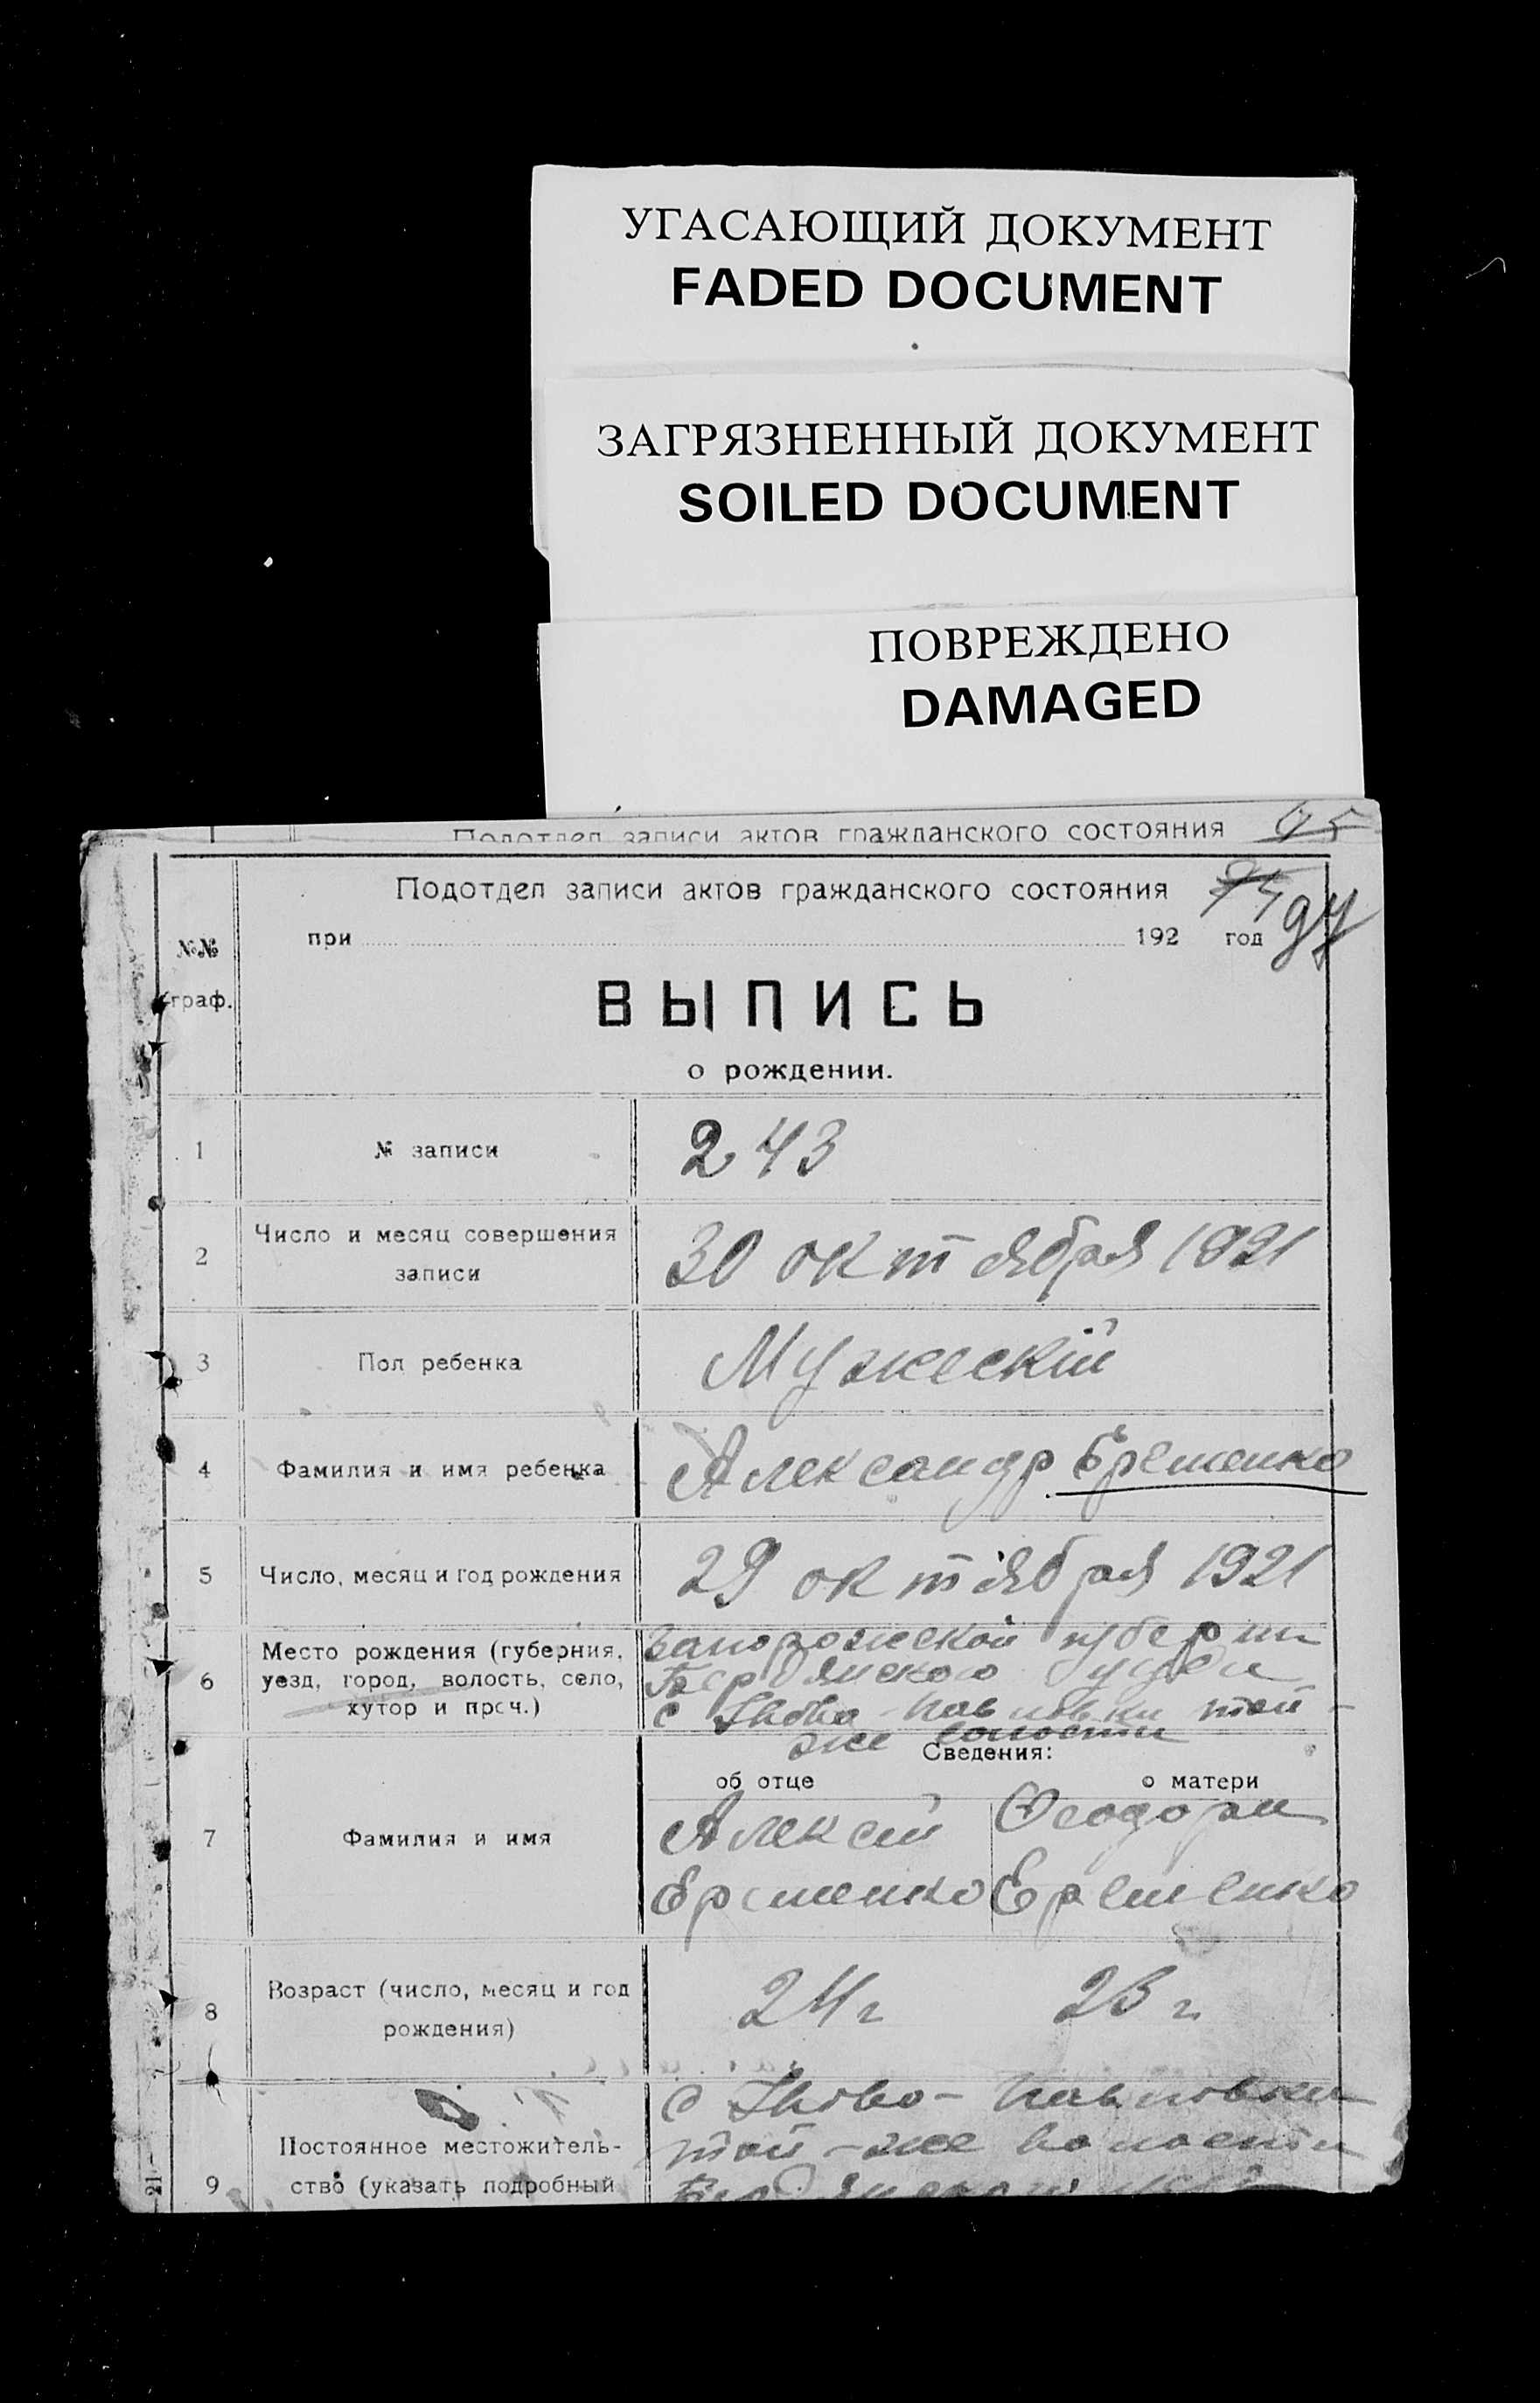 УГАСАЮЩИЙ ДОКУМЕНТ
FADED DOCUMENT
ЗАГРЯЗНЕННЫЙ ДОКУМЕНТ
SOILED DOCUMENT
ПОВРЕЖДЕНО
DAMAGED
Подотдел записи актов гражданского состояния
Подотдел записи актов гражданского состояния
№№ граф.
при 192 год
ВЫПИСЬ
о рождении.
1 № записи 243
2 Число и месяц совершения
записи 30 октября 1921
3 Пол ребенка Мужескій
4 Фамилия и имя ребенка Александр Еременко
5 Число, месяц и год рождения 29 октября 1921
6 Место рождения (губерния, Запорожской губернии
уезд, город, волость, село, Бердянского уезда
хутор и проч.) с Ново-Павловки той-
же волости
Сведения:
об отце о матери
7 Фамилия и имя Алексей Феодора
Еременко Еременко
8 Возраст (число, месяц и год
рождения) 24 г 23 г.
с Ново-Павловки
Постоянное местожитель- той-же волости
9 ство (указать подробный
21